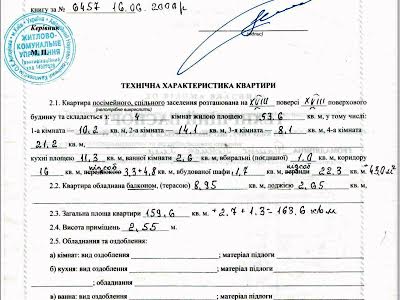 книгу за № 6457 16.06.2000 г.
Керівник
(підпис)
М. П.
ЖИТЛОВО-
КОМУНАЛЬНЕ
УПРАВЛІННЯ
ТЕХНІЧНА ХАРАКТЕРИСТИКА КВАРТИРИ
2.1. Квартира посімейного, спільного заселення розташована на XVIII поверсі XVIII поверхового
(непотрібне викреслити)
будинку та складається з 4 кімнат жилою площею 53,6 кв. м, у тому числі:
1-а кімната 10,2 кв. м, 2-а кімната 14,1 кв. м, 3-я кімната 8,1 кв. м, 4-а кімната
21,2 кв. м,
кухні площею 11,3 кв. м, ванної кімнати 2,6 кв. м, вбиральні (поєднаної) 1,0 кв. м, коридору
16 кв. м, підсоб 3,3+4,8 кв. м, вбудованої шафи 1,7 кв. м, підсоб веранди 22,3 кв. м
2.2. Квартира обладнана балконом, (терасою) 8,95 кв. м, лоджією 2,65 кв. м.
2.3. Загальна площа квартири 159,6 кв. м. +2,7+1,3=163,6 кв м
2.4. Висота приміщень 2,55 м.
2.5. Обладнання та оздоблення:
а) кімнат: вид оздоблення ; матеріал підлоги
б) кухня: вид оздоблення ; матеріал підлоги
; обладнання
в) ванна: вид оздоблення ; матеріал підлоги